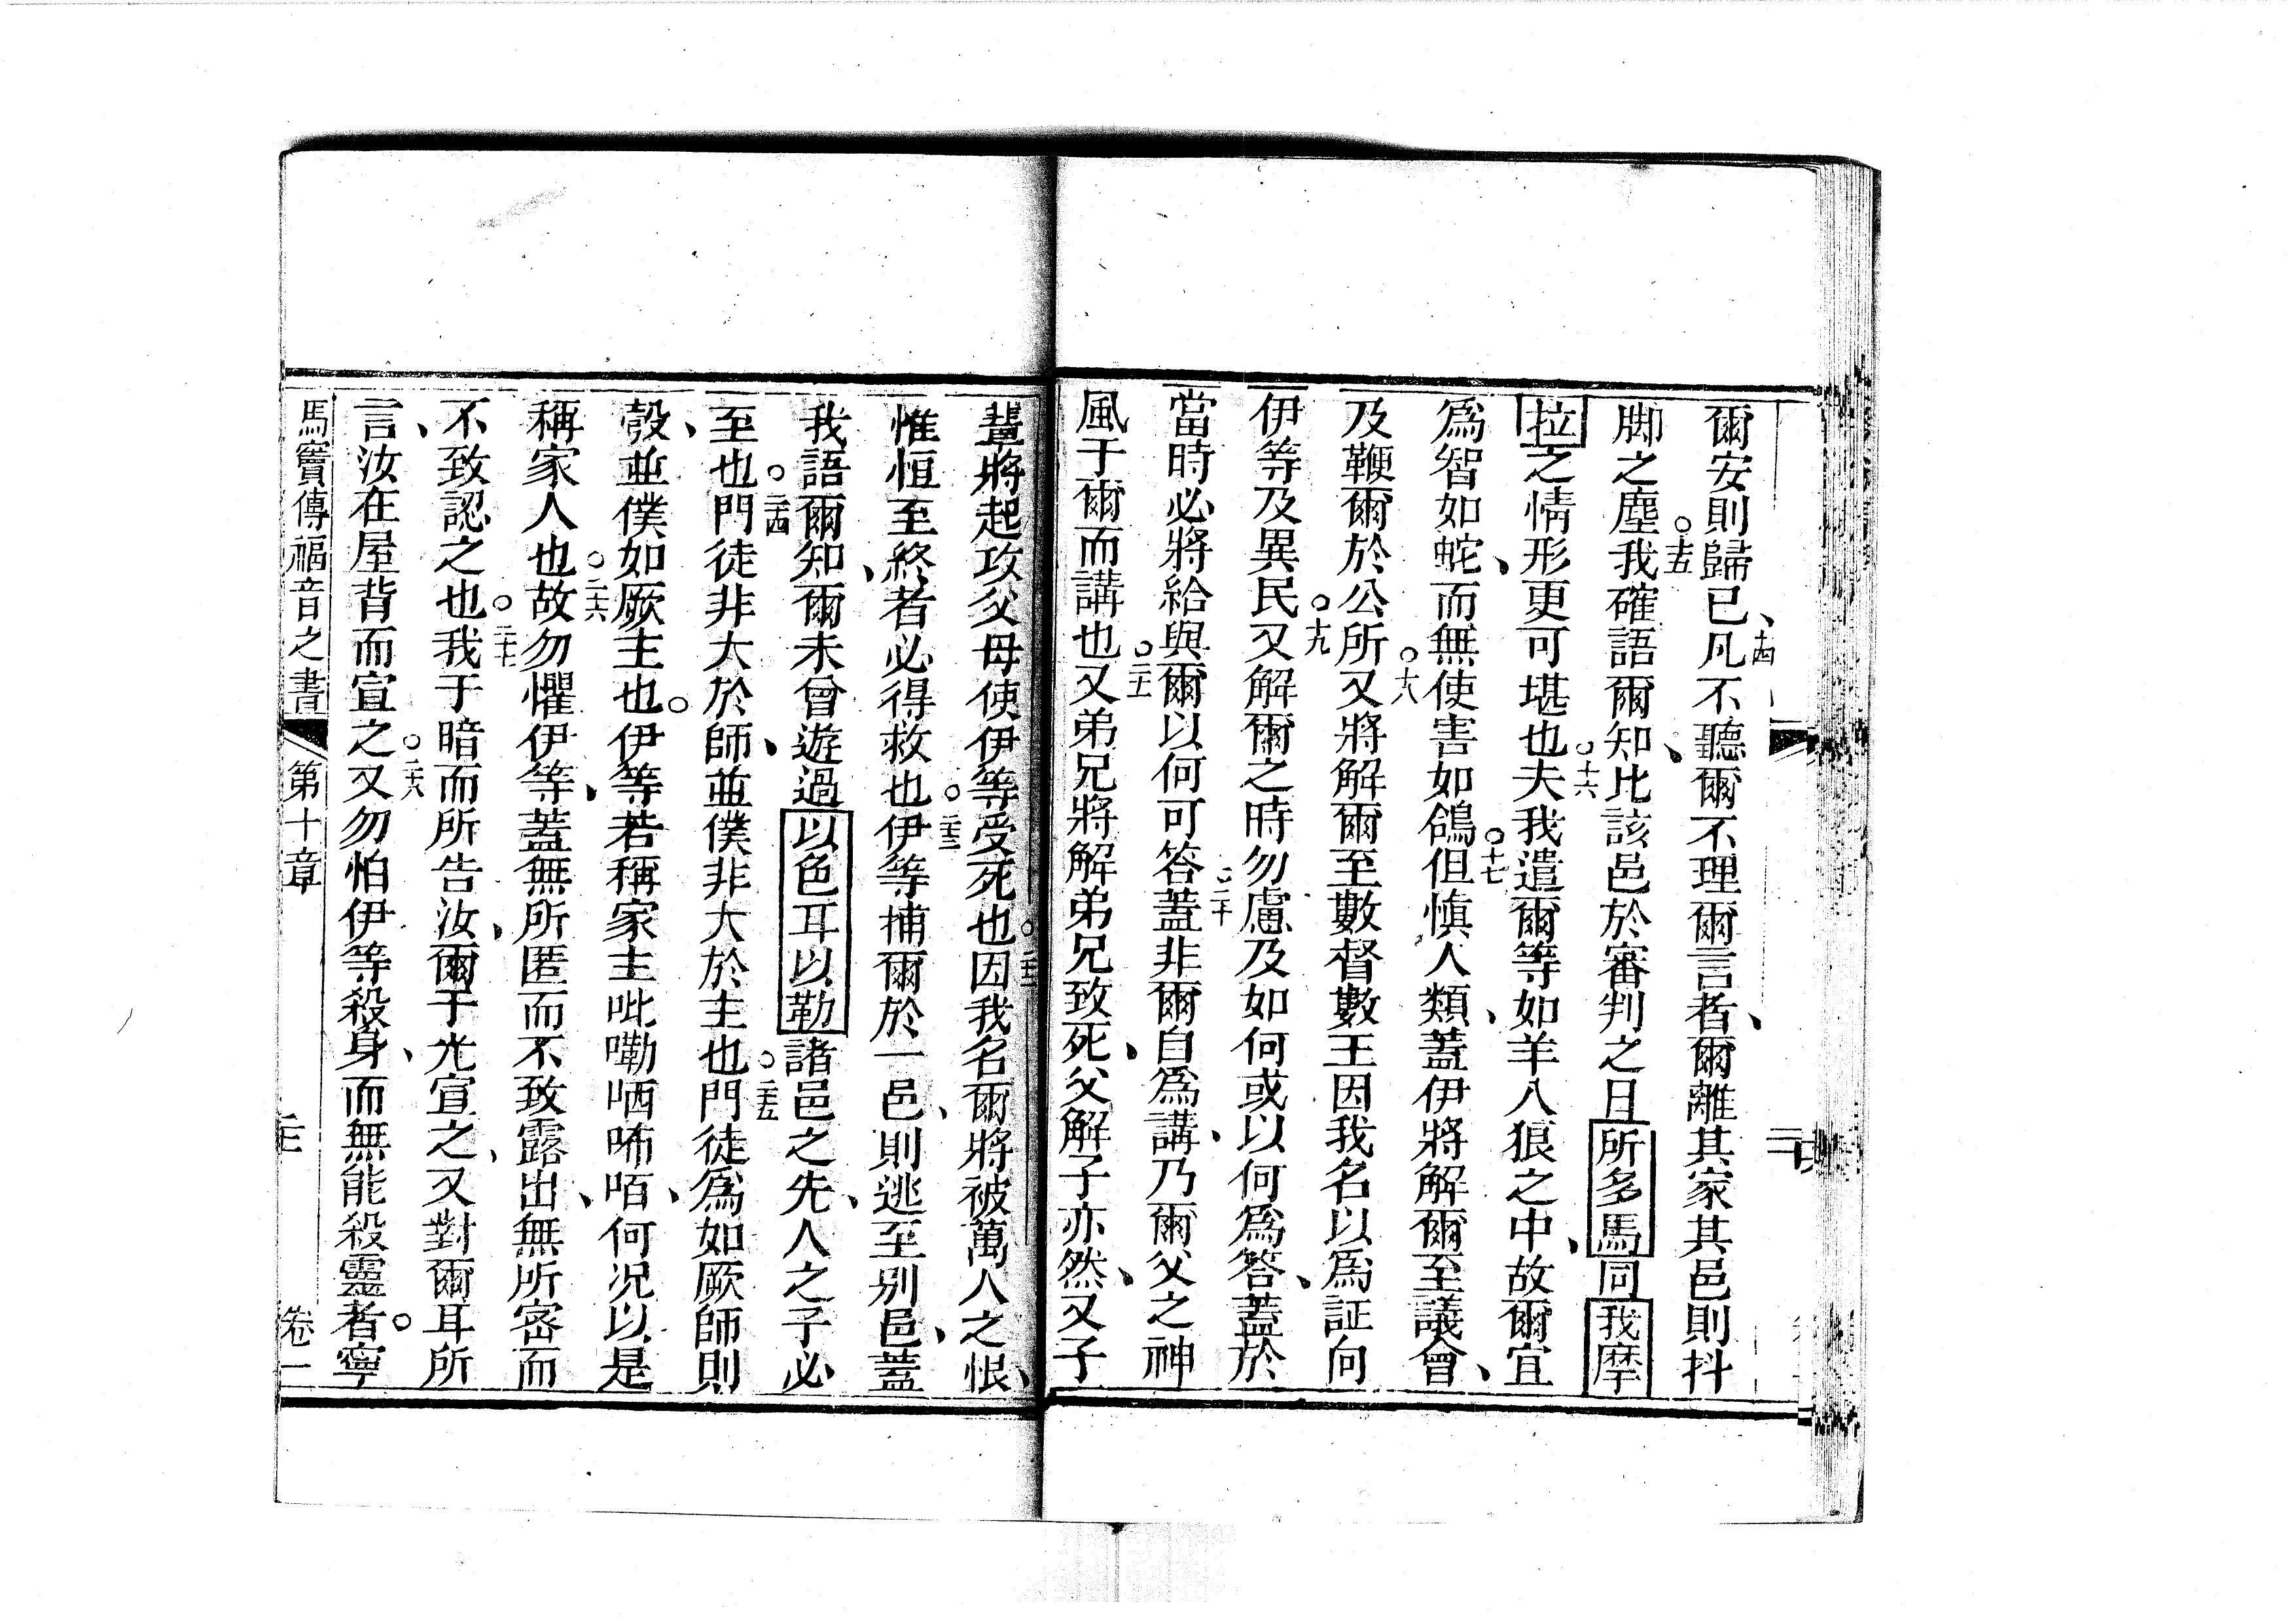 爾安則歸已、十四凡不聽爾不理爾言者、爾離其家其邑則抖
脚之塵○十五我確語爾知、比該邑於審判之日所多馬同我摩
拉之情形更可堪也○十六夫我遣爾等如羊入狼之中、故爾宜
爲智如蛇、而無使害如鴿○十七但慎人類、蓋伊將解爾至議會、
及鞭爾於公所○十八又將解爾至數督數王因我名以爲証向
伊等及異民○十九又解爾之時勿慮及如何或以何爲答、蓋於
當時必將給與爾以何可答○二十蓋非爾自爲講、乃爾父之神
風于爾而講也○二十一又弟兄將解弟兄致死、父解子亦然、又子
輩將起攻父母使伊等受死也○二十二因我名爾將被萬人之恨、
惟恒至終者必得救也○二十三伊等捕爾於一邑、則逃至別邑、蓋
我語爾知、爾未曾遊過以色耳以勒諸邑之先、人之子必
至也○二十四門徒非大於師、並僕非大於主也○二十五門徒爲如厥師則
彀、並僕如厥主也○伊等若稱家主呲嘞哂咘咟、何況以是
稱家人也○二十六故勿懼伊等、蓋無所匿而不致露出、無所密而
不致認之也○二十七我于暗而所告汝、爾于光宣之、又對爾耳所
言、汝在屋背而宣之○二十八又勿怕伊等殺身、而無能殺靈者○寧
馬竇傳福音之書 第十章 卷一